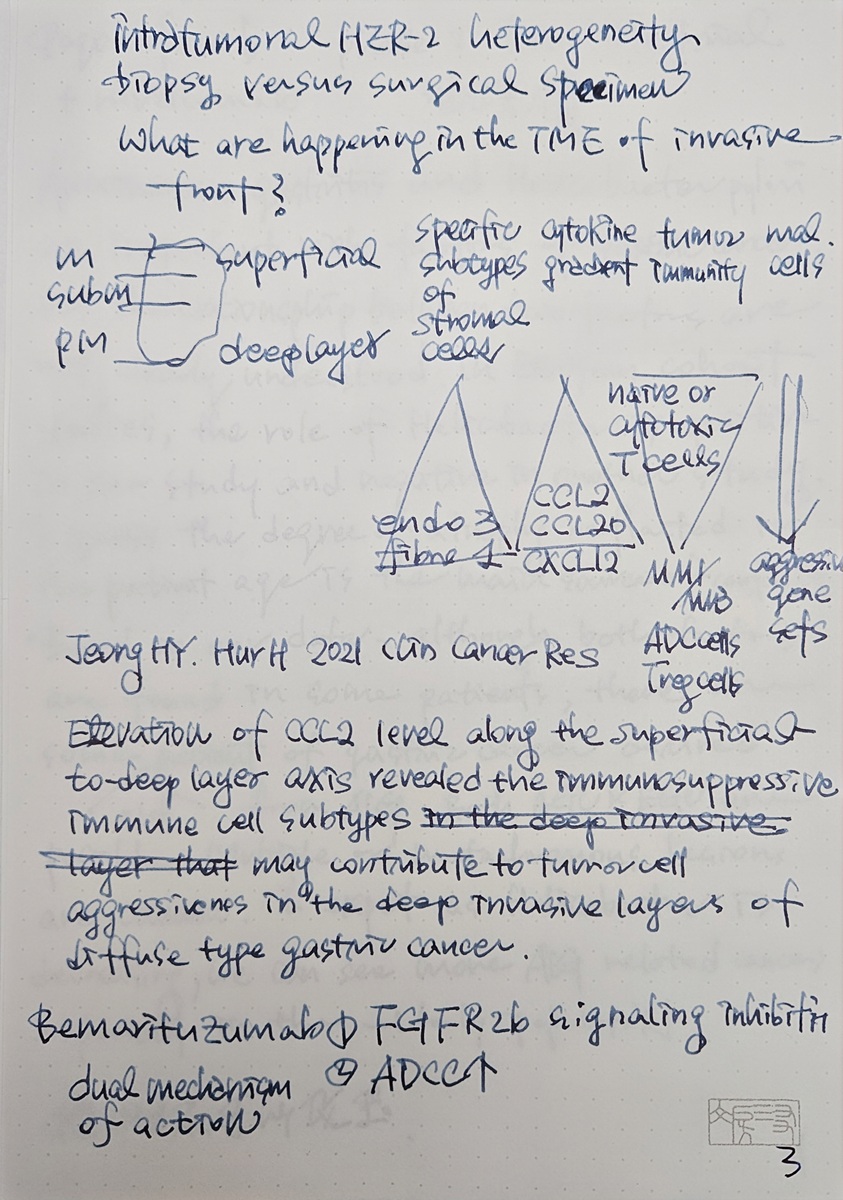 intratumoral HER-2 heterogeneity
biopsy versus surgical specimen
What are happening in the TME of invasive
front?
m superficial
subm
pm deep layer
specific cytokine tumor mal.
subtypes gradient immunity cells
of
stromal
cells
naive or
cytotoxic
T cells
endo 3
fibro 4
CCL2
CCL20
CXCL12
aggressive
gene
sets
ADC cells
Treg cells
Jeong HY. Hur H 2021 Clin Cancer Res
Elevation of CCL2 level along the superficial-
to-deep layer axis revealed the immunosuppressive
immune cell subtypes in the deep invasive
layer that may contribute to tumor cell
aggressivenes in the deep invasive layers of
diffuse type gastric cancer.
Bemarituzumab ① FGFR2b signaling inhibitin
dual mechanism ② ADCC↑
of action
3